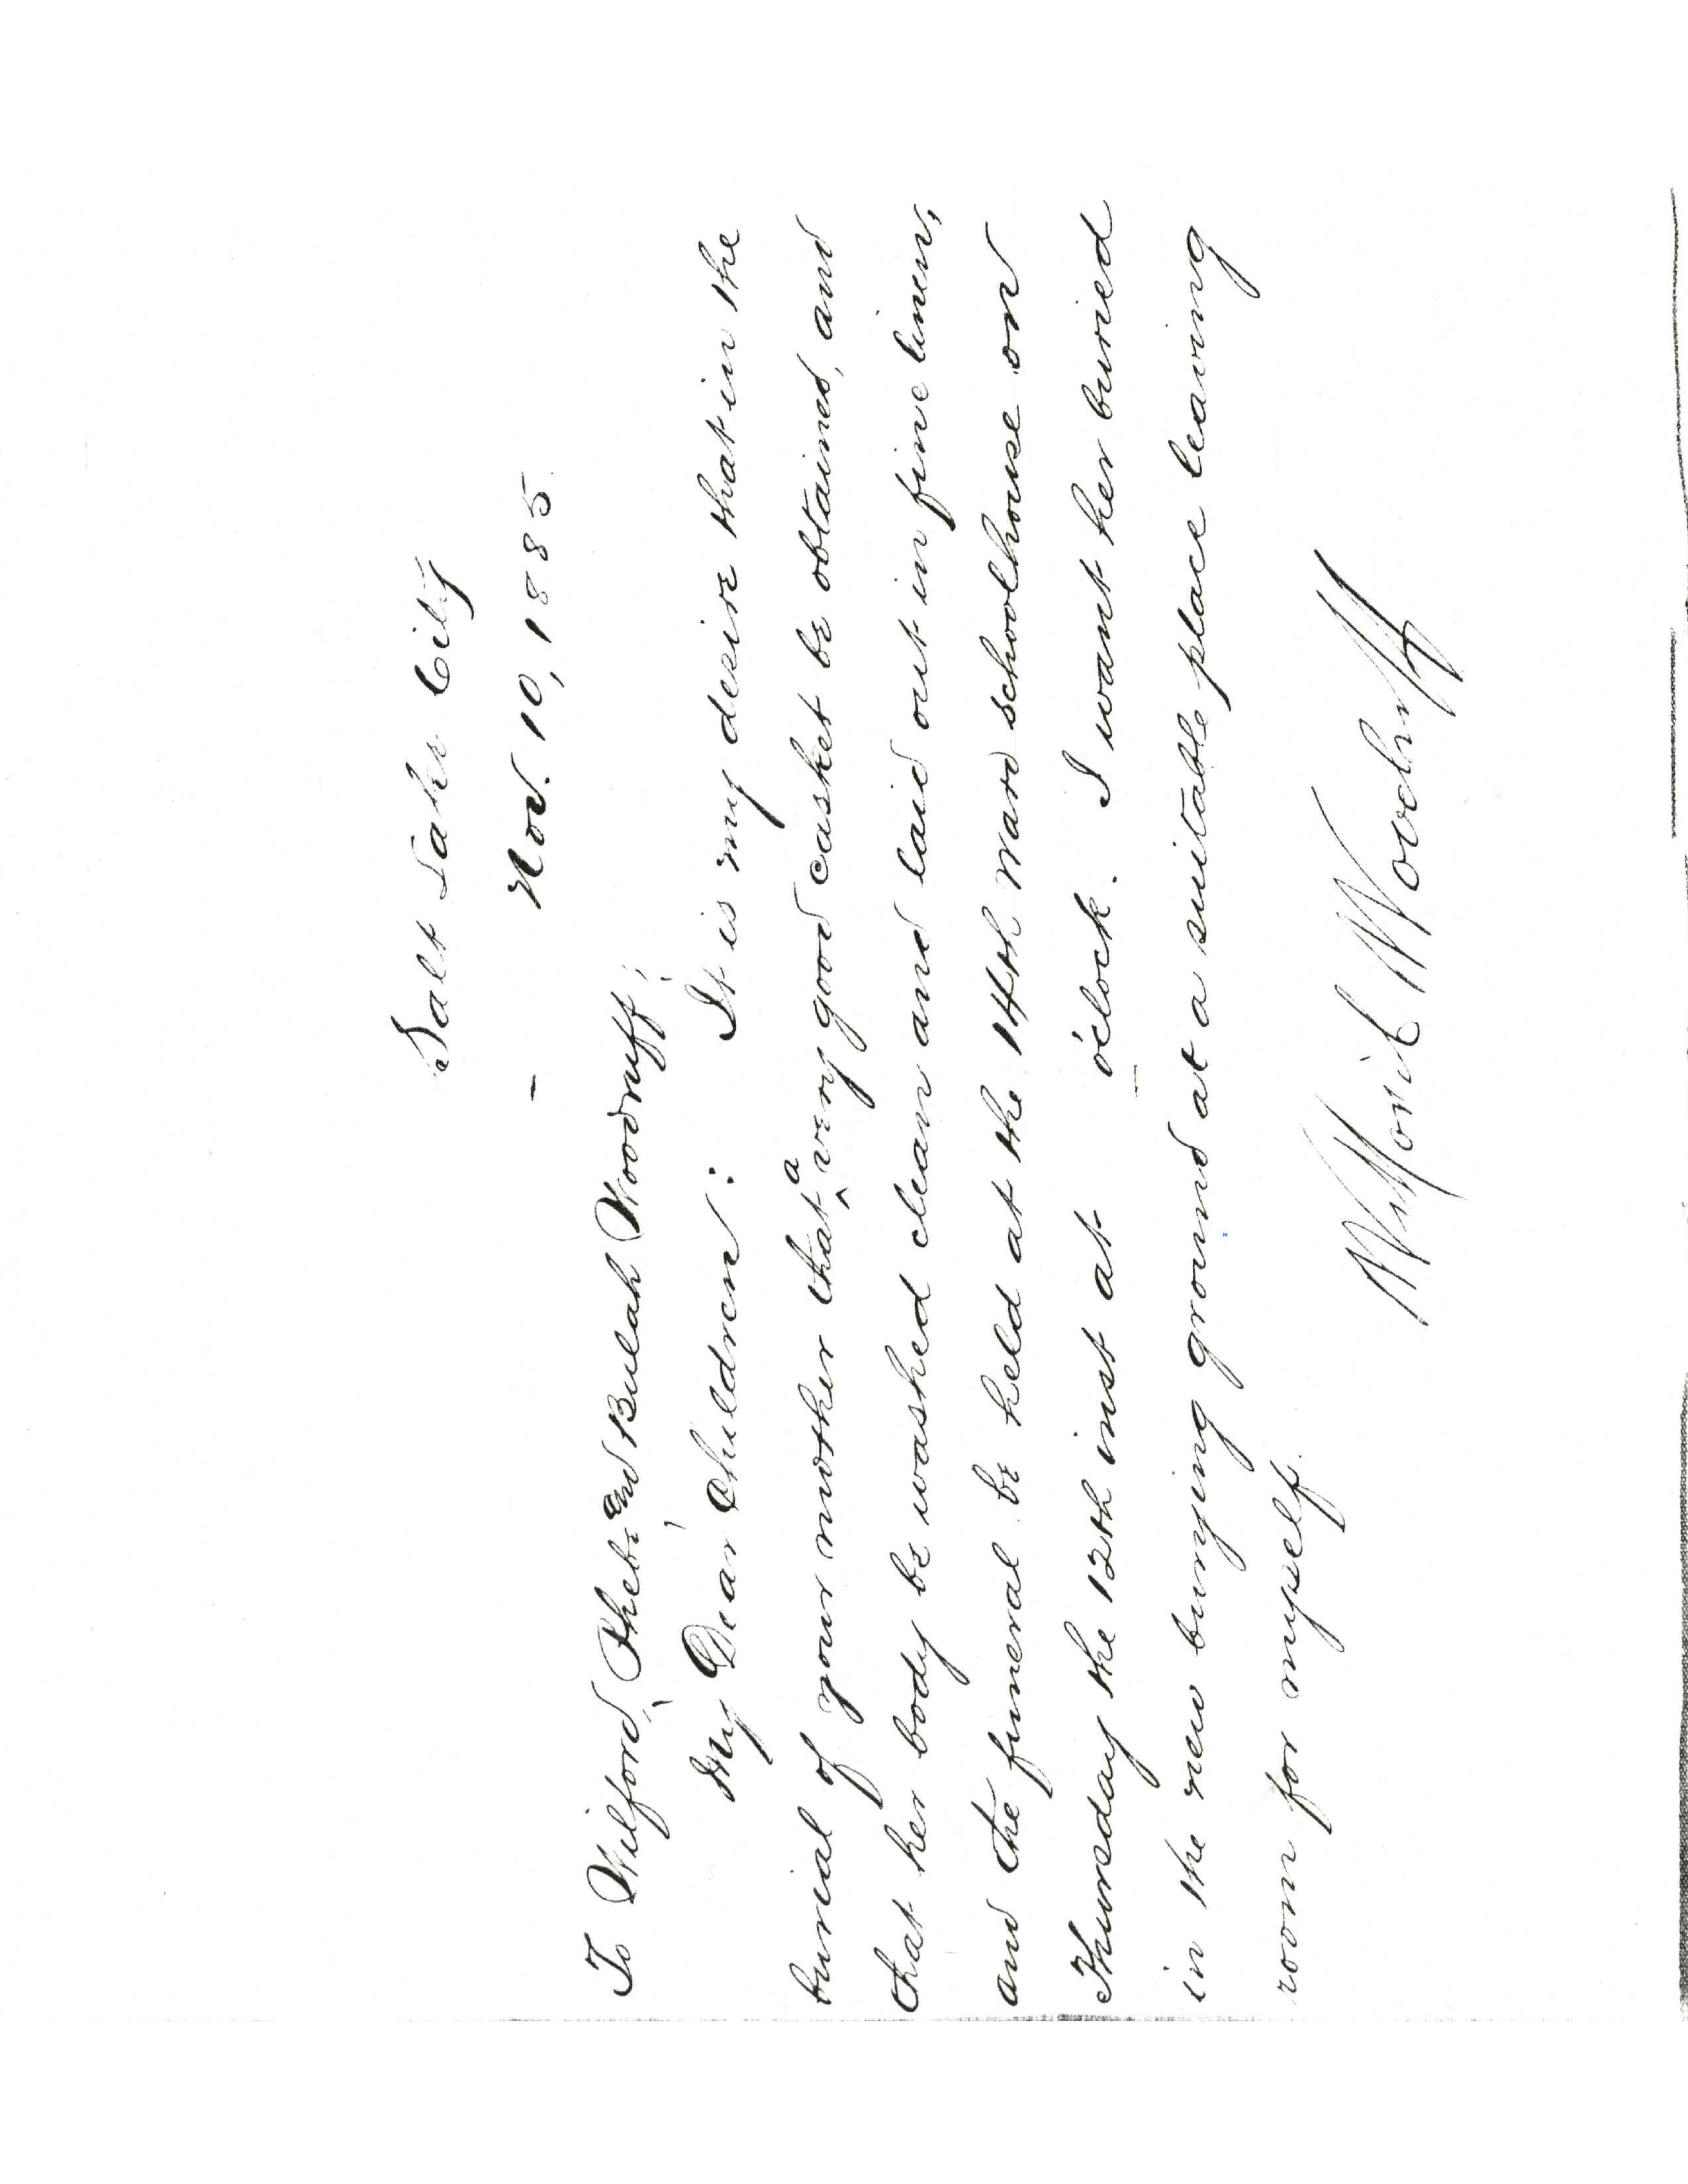 Salt Lake City
Nov. 10, 1885.
To Wilford, Phebe and Bulah Woodruff;
My Dear Children: It is my desire that in the
burial of your mother that a very good casket be obtained, and
that her body be washed clean and laid out in fine linen,
and the funeral be held at the 14th Ward schoolhouse on
Thursday the 12th inst at o'clock. I want her buried
in the new burying ground at a suitable place leaving
room for myself.
Wilford Woodruff